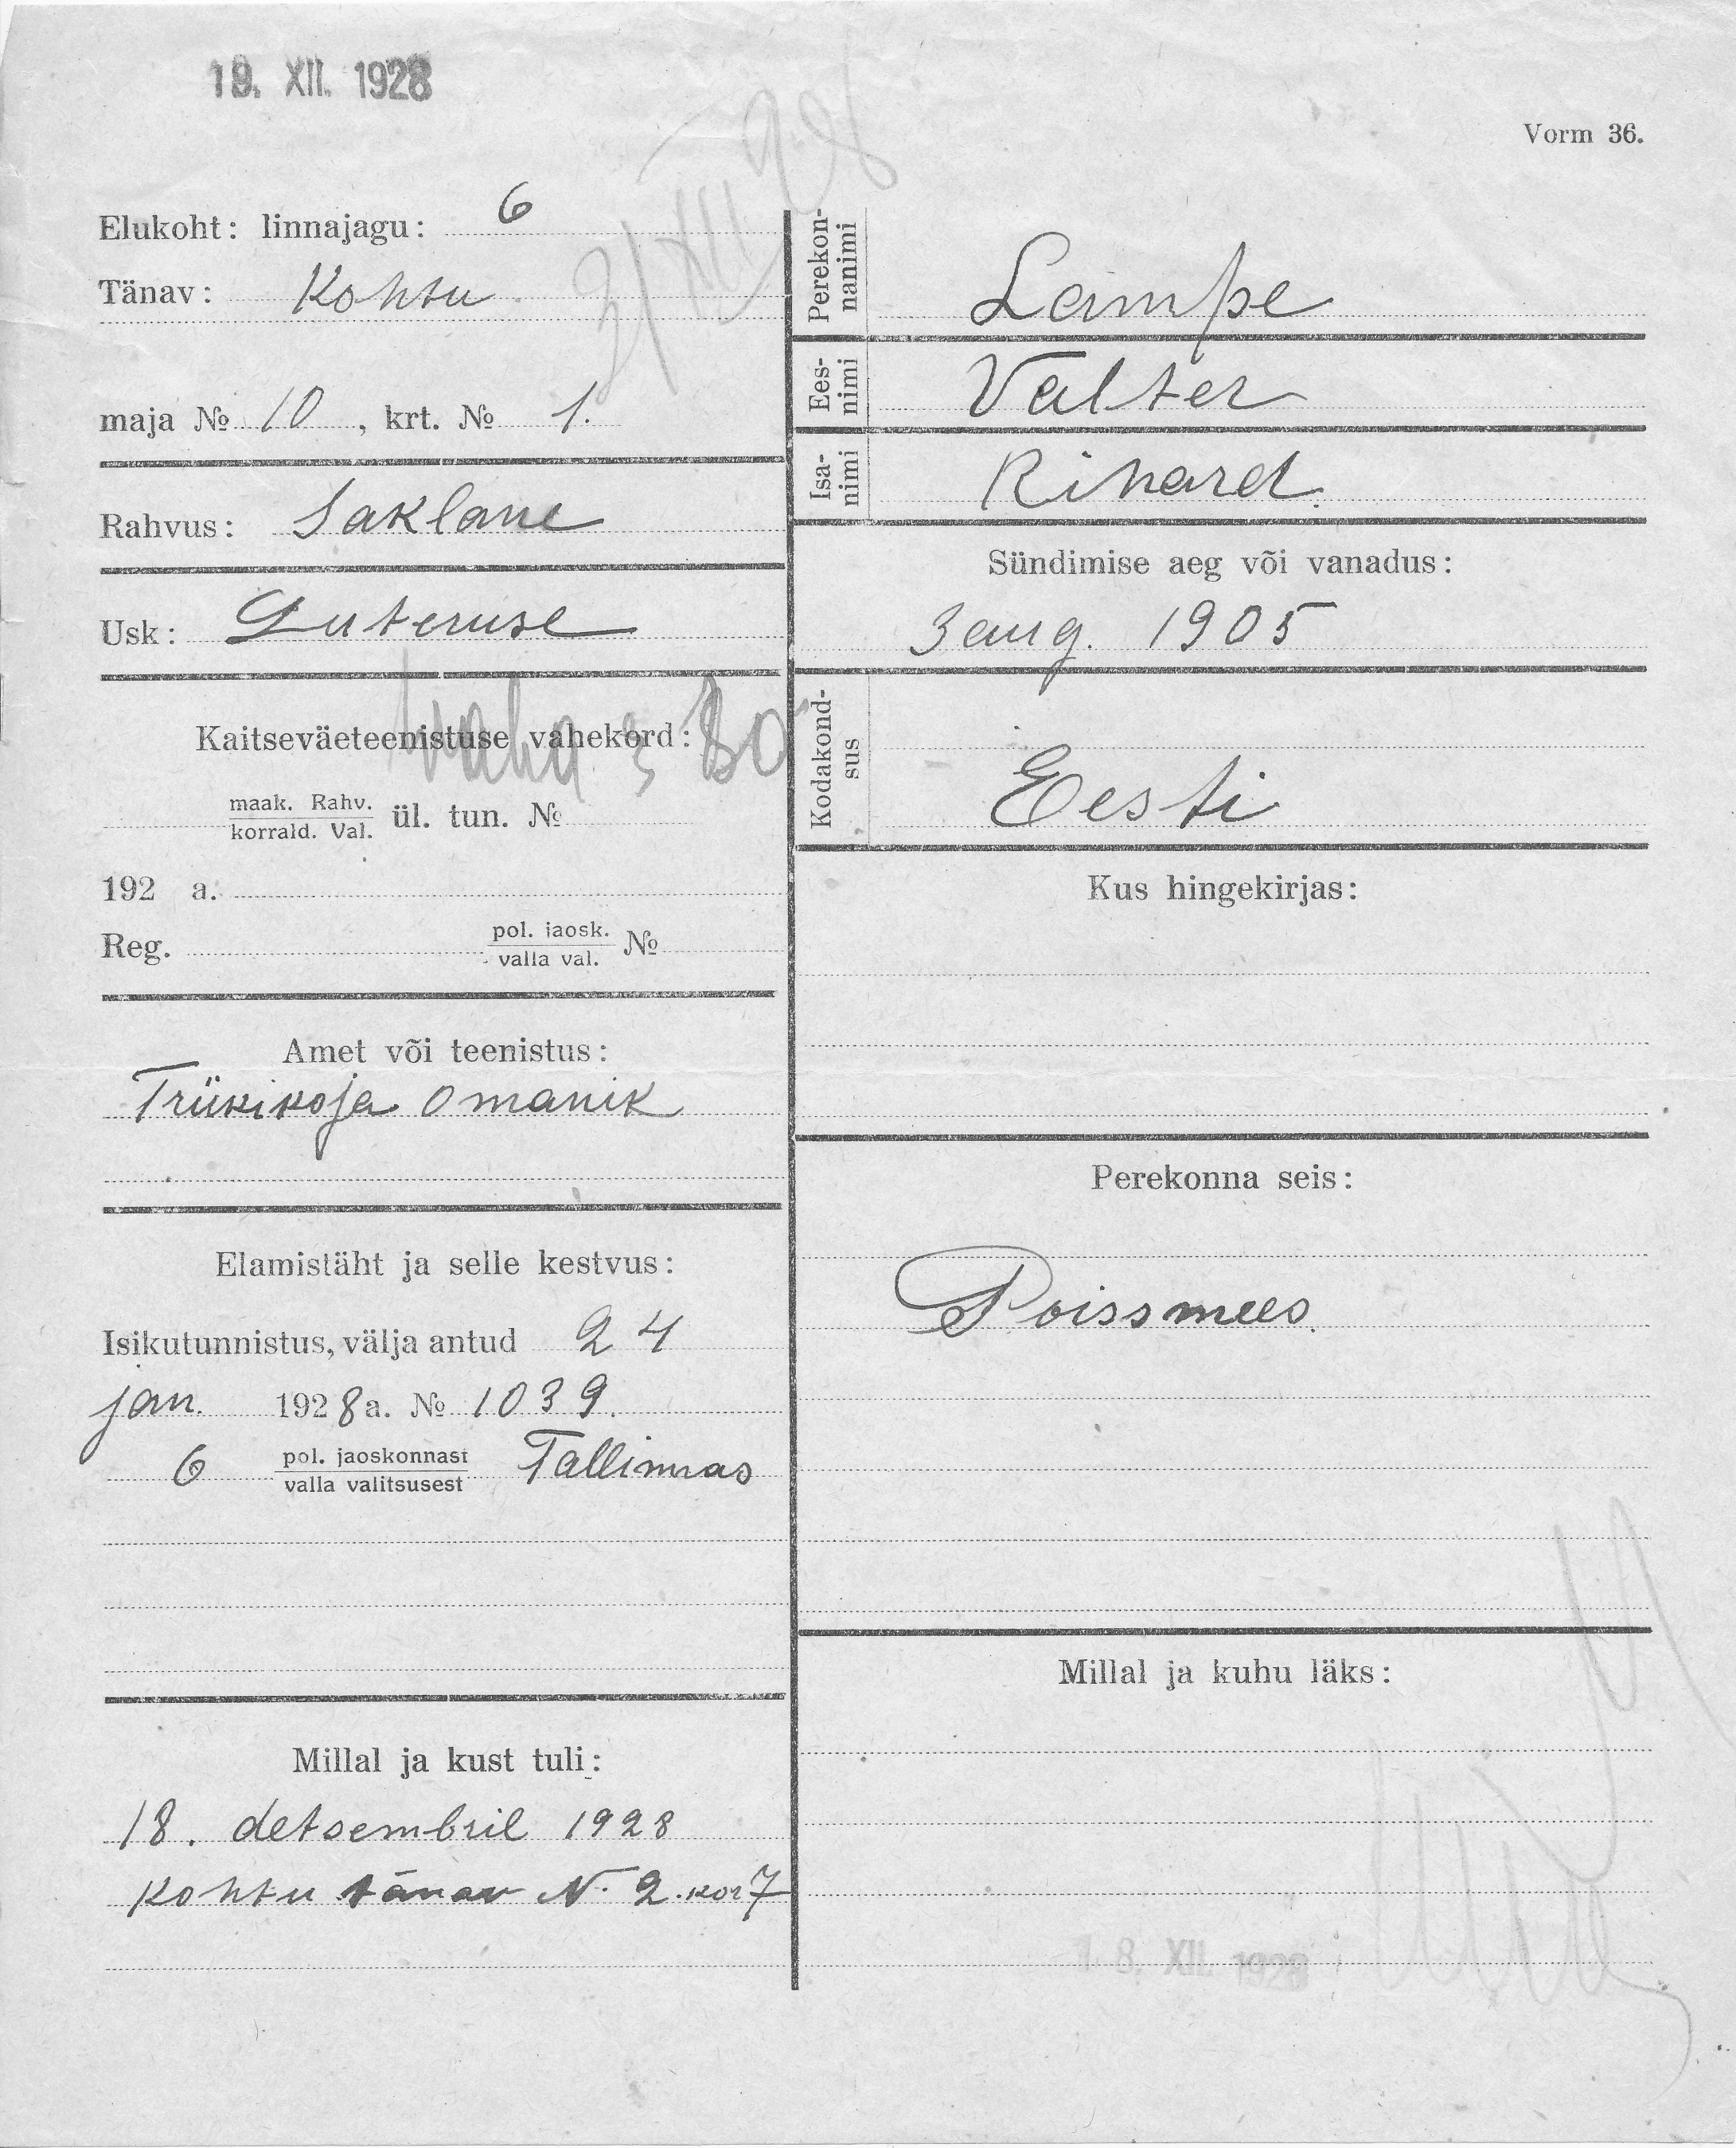 19. XII. 1928
Vorm 36.
Elukoht: linnajagu: 6
Tänav: Kohtu
maja № 10, krt. № 1.
Rahvus: Saklane
Usk: Luteruse
Kaitseväeteenistuse vahekord:
maak. Rahv.
korrald. Val. ül. tun. №
192 a.
Reg. pol. jaosk.
valla val. №
Amet või teenistus:
Trükikoja omanik
Elamistäht ja selle kestvus:
Isikutunnistus, välja antud 24
jan. 1928 a. № 1039.
6 pol. jaoskonnast
valla valitsusest Tallinnas
Millal ja kust tuli:
18. detsembril 1928
Kohtu tänav N. 2. kor 7
Perekon-
nanimi
Lampe
Ees-
nimi
Valter
Isa-
nimi
Rihard.
Sündimise aeg või vanadus:
3 aug. 1905
Kodakond-
sus
Eesti
Kus hingekirjas:
Perekonna seis:
Poissmees.
Millal ja kuhu läks:
18. XII. 1928